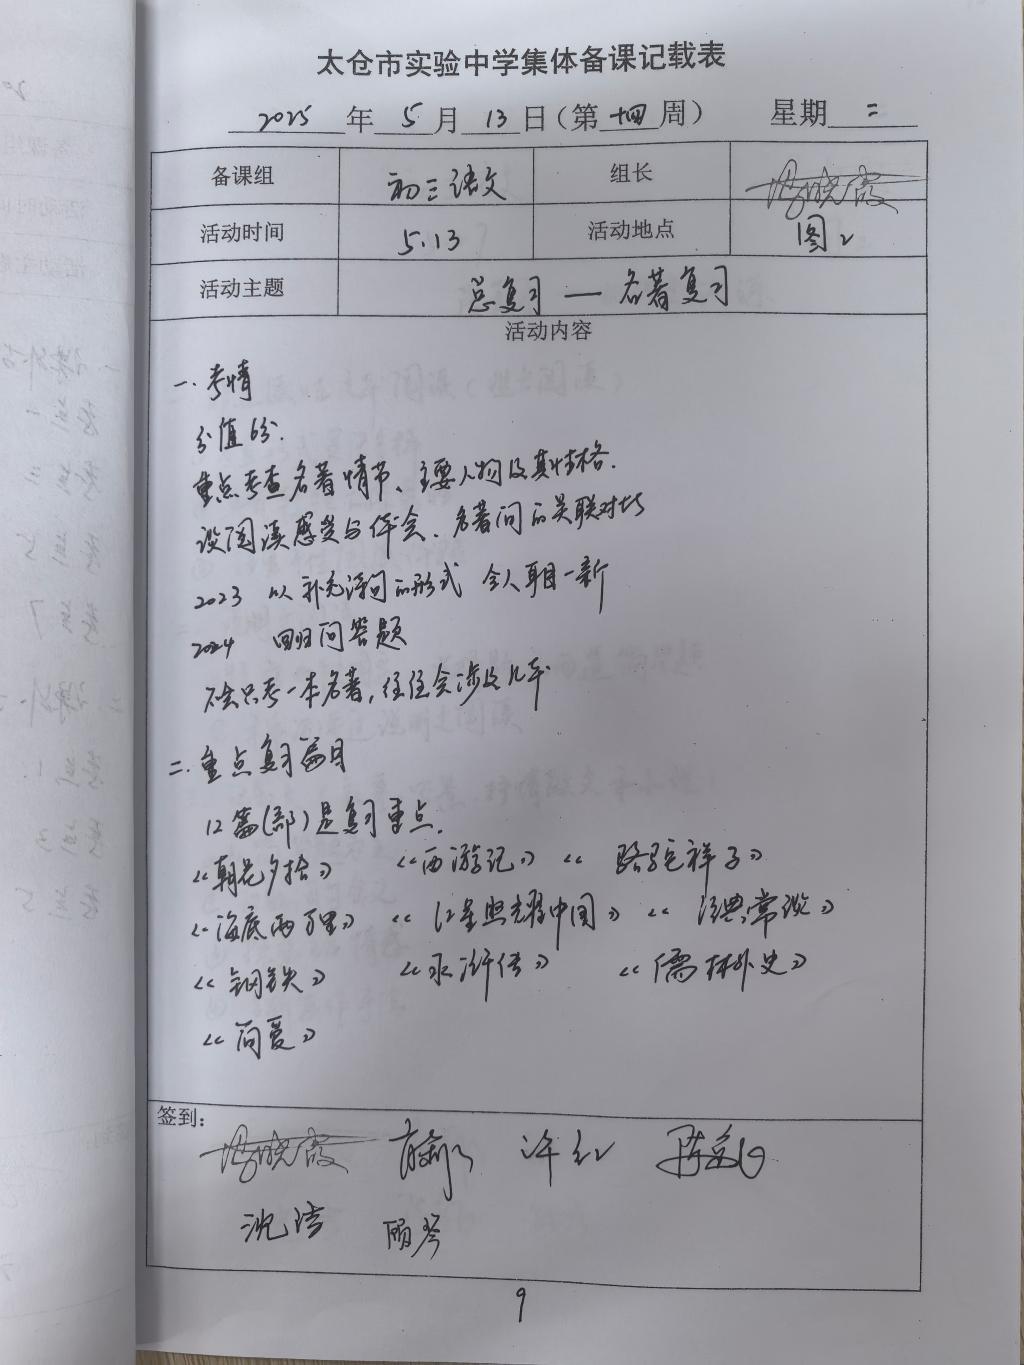 太仓市实验中学集体备课记载表
2025年5月13日(第十四周) 星期二
备课组 初三语文 组长
活动时间 5.13 活动地点 图2
活动主题 总复习——名著复习
活动内容
一.考情
分值6分.
重点考查名著情节、主要人物及其性格.
谈阅读感受与体会、名著间的关联对比
2023 以补充诗句的形式 令人耳目一新
2024 回归问答题
不会只考一本名著,往往会涉及几本
二.重点复习篇目
12篇(部)是复习重点.
《朝花夕拾》 《西游记》 《骆驼祥子》
《海底两万里》 《红星照耀中国》 《经典常谈》
《钢铁》 《水浒传》 《儒林外史》
《简爱》
签到:
许红
沈洁 顾琴
9